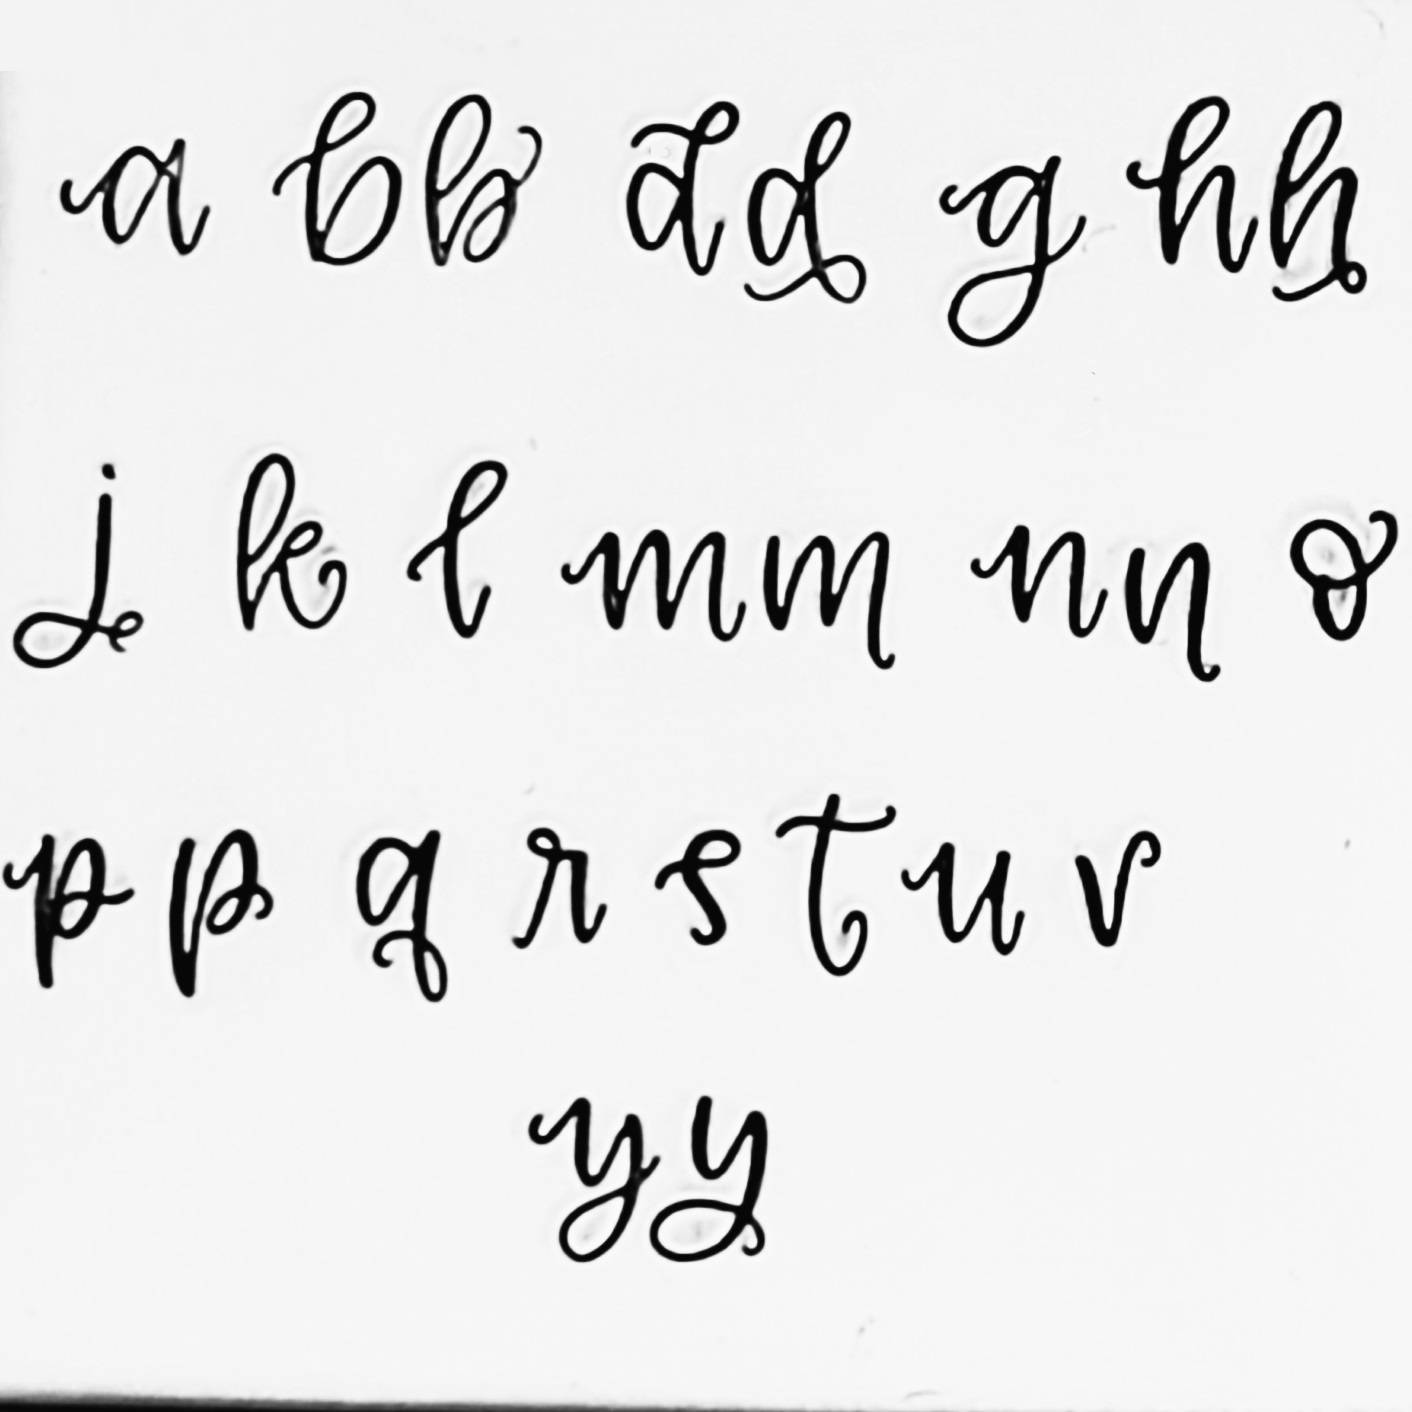 a bb dd g hh
j k l mm nn o
pp q r s t u v
yy